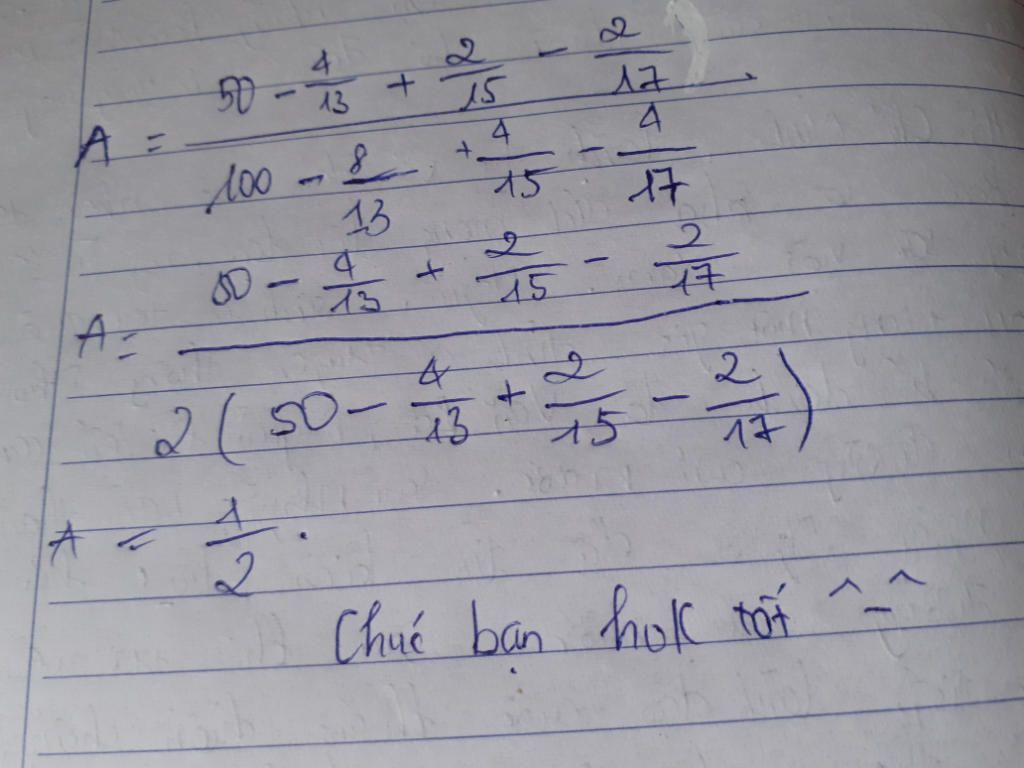 A = \frac{50 - \frac{4}{13} + \frac{2}{15} - \frac{2}{17}}{100 - \frac{8}{13} + \frac{4}{15} - \frac{4}{17}}
A = \frac{50 - \frac{4}{13} + \frac{2}{15} - \frac{2}{17}}{2 ( 50 - \frac{4}{13} + \frac{2}{15} - \frac{2}{17} )}
A = \frac{1}{2} .
Chúc bạn hok tốt ^_^